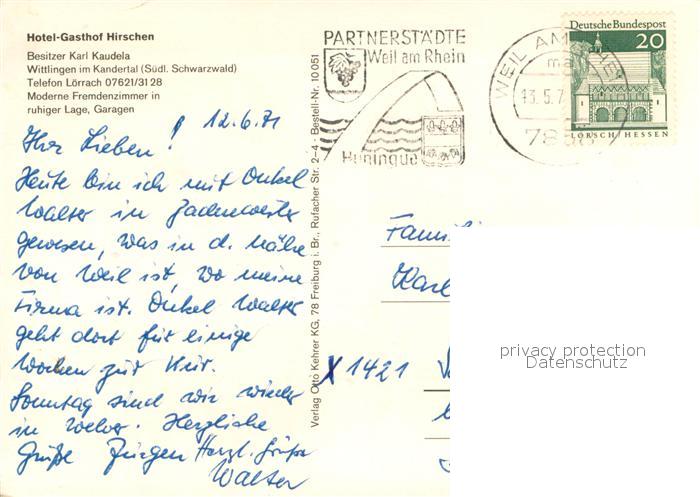 Hotel-Gasthof Hirschen
Besitzer Karl Kaudela
Wittlingen im Kandertal (Südl. Schwarzwald)
Telefon Lörrach 07621/31 28
Moderne Fremdenzimmer in
ruhiger Lage, Garagen
12.6.71
Ihr Lieben!
Heute bin ich mit Onkel
Walter in
gewesen, was in d. Nähe
von Weil ist, wo meine
Firma ist. Onkel Walter
geht dort für einige
Wochen zur Kur.
Sonntag sind wir wieder
in Herzliche
Grüße Jürgen Herzl. Grüße
Walter
Verlag Otto Kehrer KG, 78 Freiburg i. Br., Rufacher Str. 2–4 · Bestell-Nr. 10 051
PARTNERSTÄDTE
Weil am Rhein
Huningue
WEIL AM RHE
13.5.7
Deutsche Bundespost
20
LORSCH/HESSEN
Fami
Karl
X 1421
privacy protection
Datenschutz